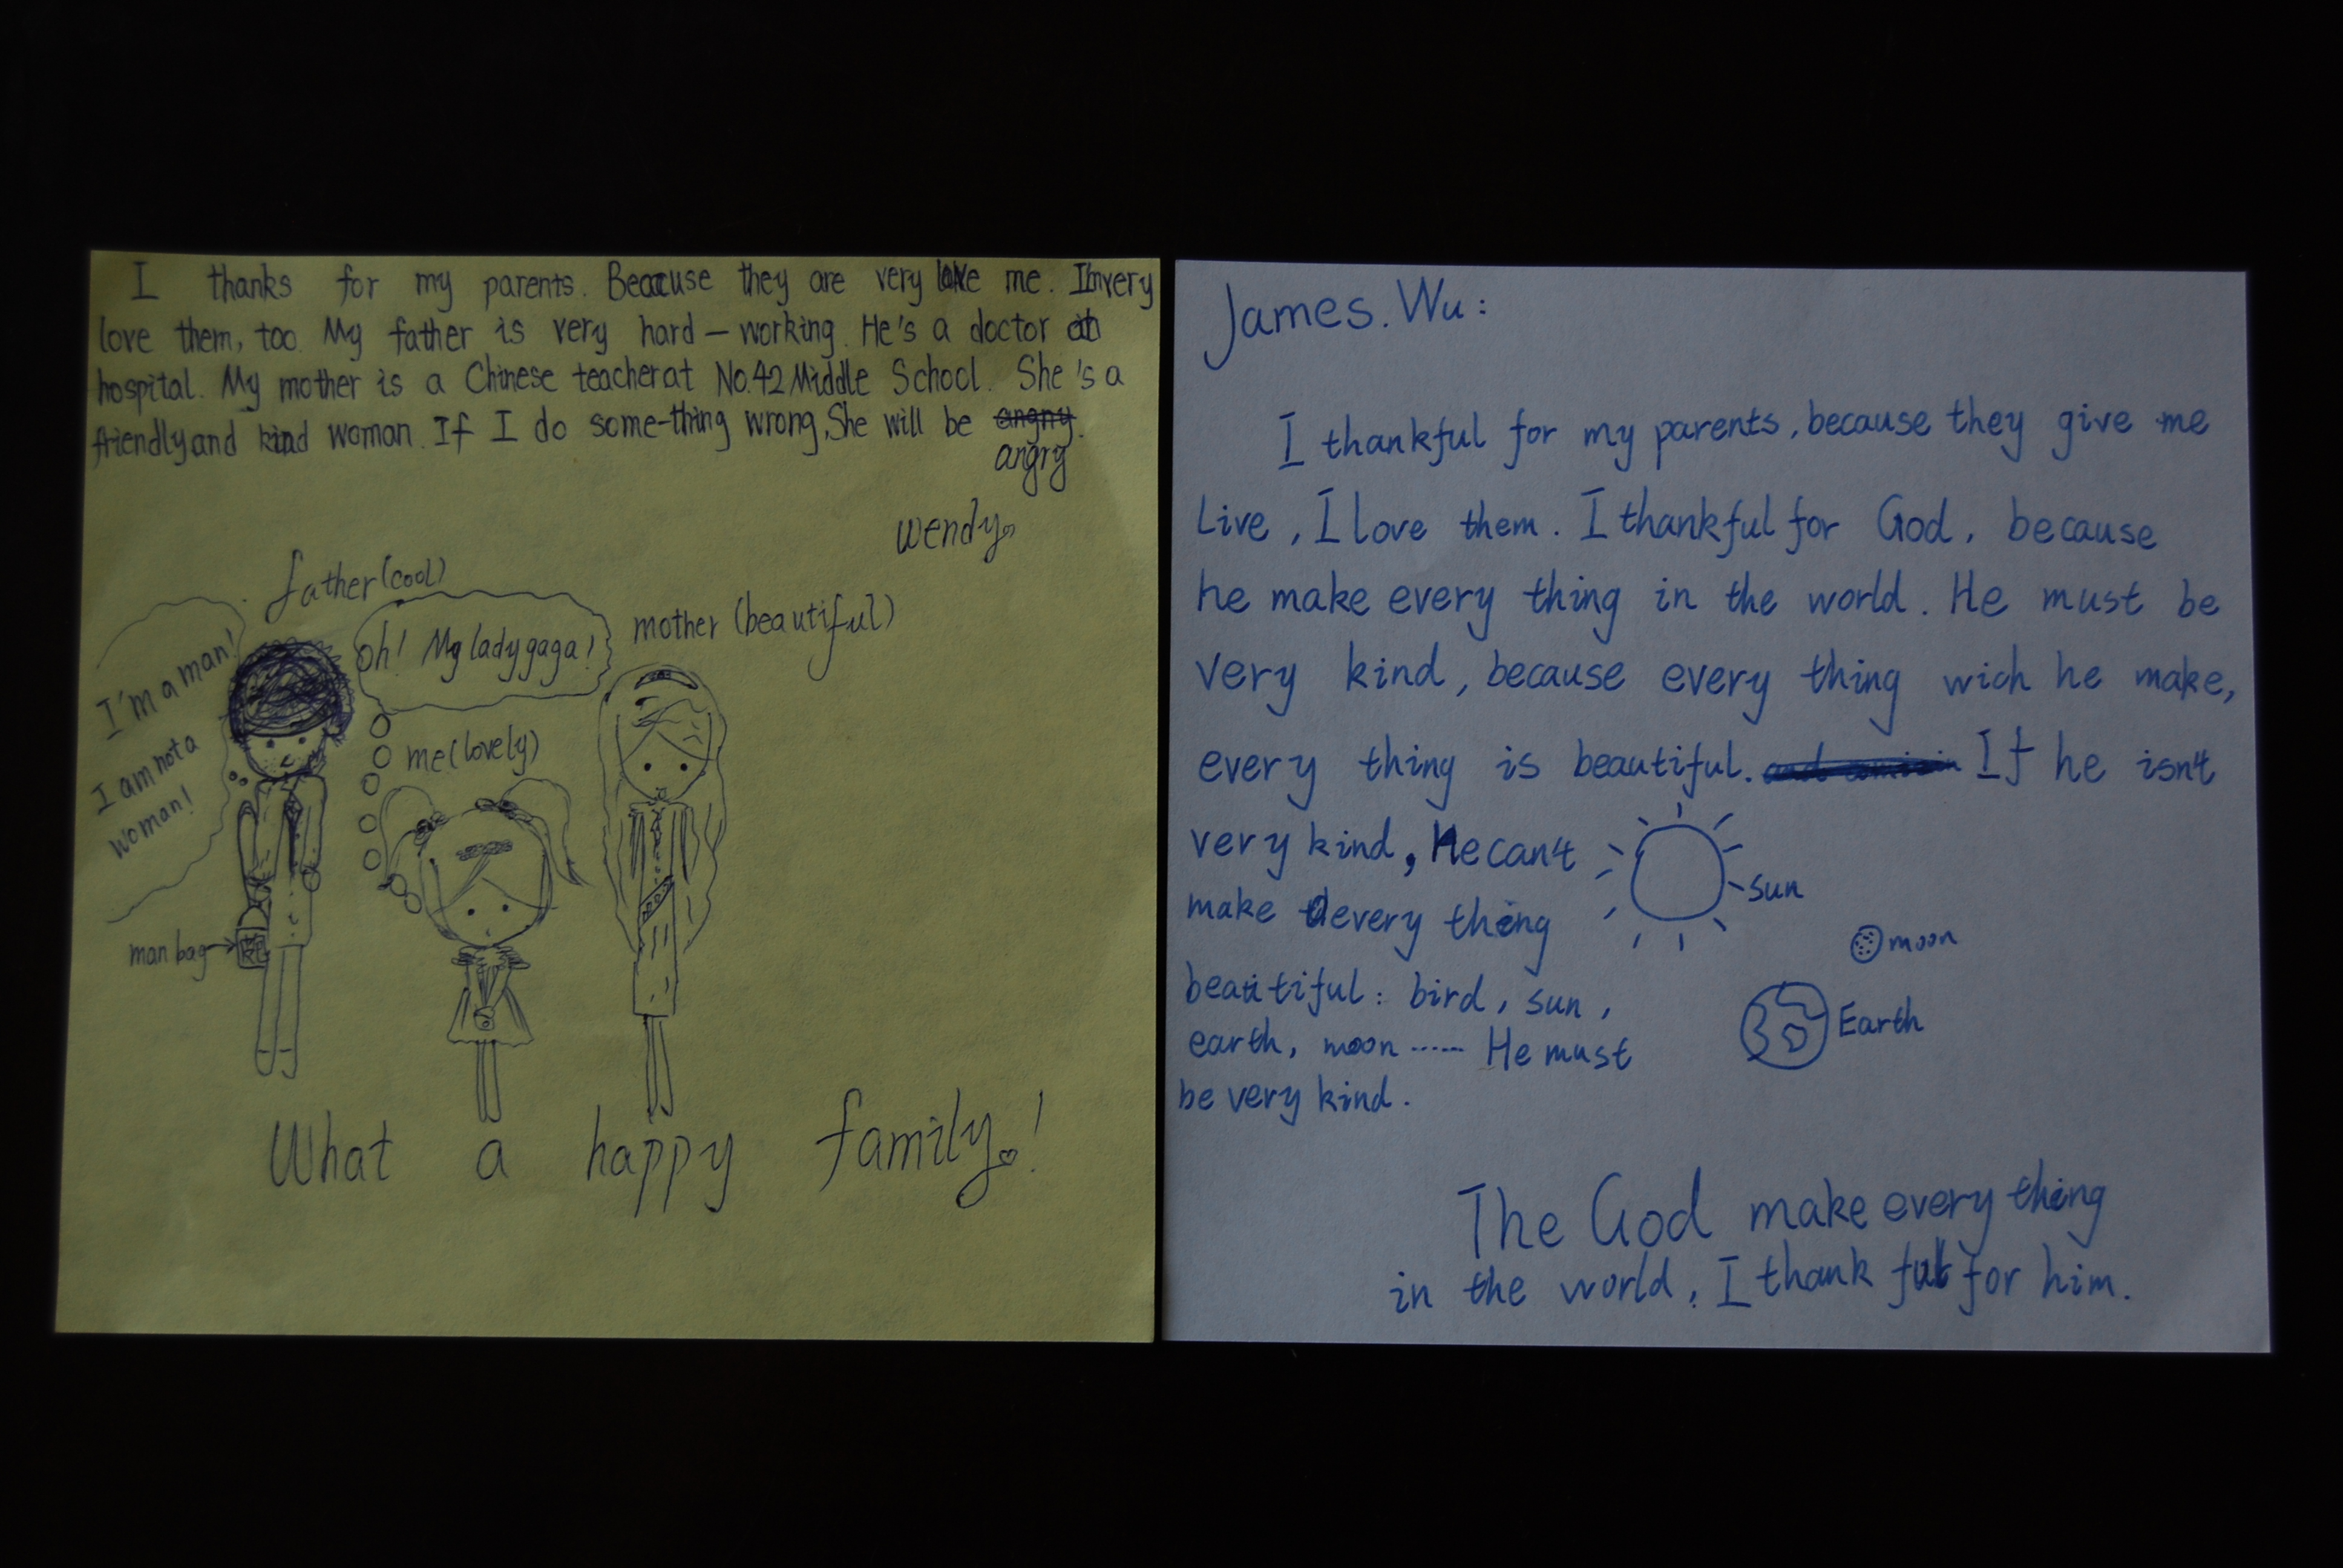 I thanks for my parents. Because they are very love me. I'm very
love them, too. My father is very hard-working. He's a doctor at
hospital. My mother is a Chinese teacher at No.42 Middle School. She's a
friendly and kind woman. If I do some-thing wrong, She will be angny.
angry
wendy
father (cool)
oh! My lady gaga!
mother (beautiful)
I'm a man!
I am not a
woman!
me (lovely)
man bag
What a happy family!
James. Wu:
I thankful for my parents, because they give me
Live, I love them. I thankful for God, because
he make every thing in the world. He must be
very kind, because every thing wich he make,
every thing is beautiful. If he isn't
very kind, He can't
make every thing
beautiful: bird, sun,
earth, moon ...... He must
be very kind.
sun
moon
Earth
The God make every thing
in the world, I thank ful for him.